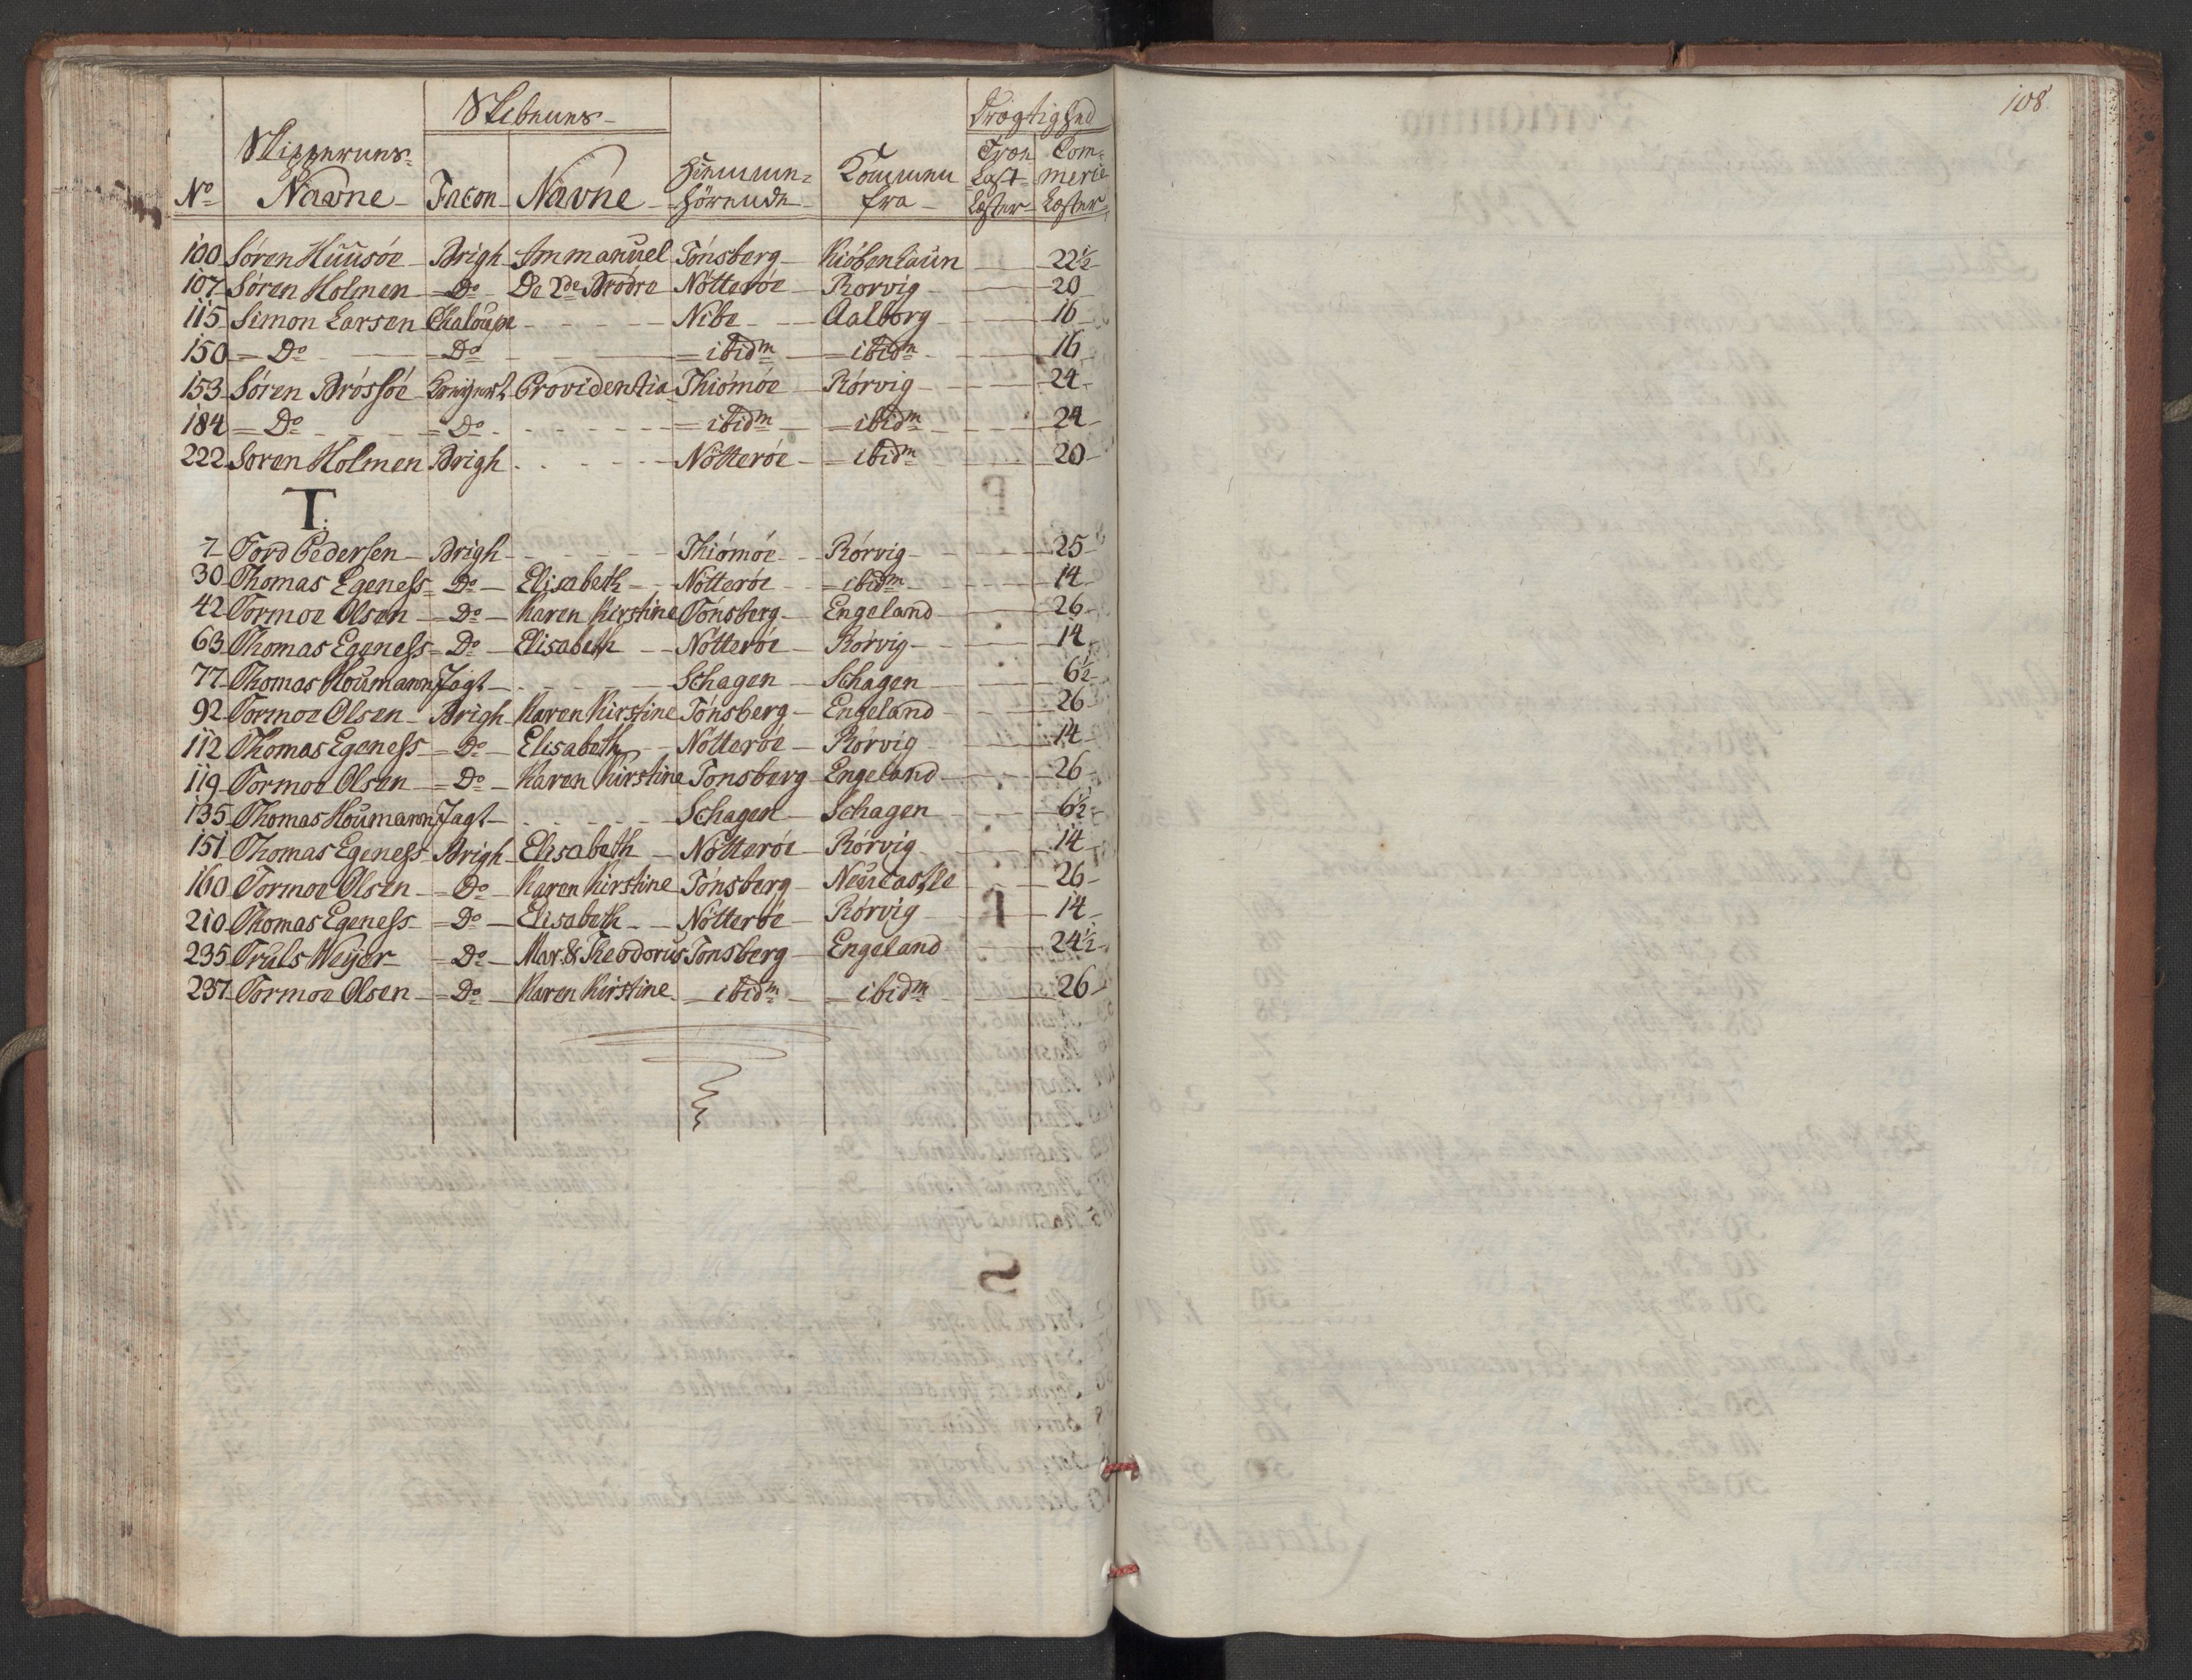 108.
Skibenes
Drægtighed
Skippernes
Træ Com-
Hiemme- Kommen Last mercie
No Navne Facon Navne hörende fra Læster Læster
100 Søren Huusöe Brigh Immanuel Tönsberg Kiöbenhaun 22½
107 Søren Holmen Do De 2de Brödre Nötteröe Rorvig 20
115 Simon Larsen Chaloupe Nibe Aalborg 16
150 Do Do ibidm ibidm 16
153 Sören Brösöe Providentia Thiömöe Rörvig 24
184 Do Do ibidm ibidm 24
222 Soren Holmen Brigh Nötteröe ibidm 20
T.
7 Tord Pedersen Brigh Thiömöe Rörvig 25
30 Thomas Egeness Do Elisabeth Nötteröe ibidm 14
42 Tormoe Olsen Do Karen Kirstine Tönsberg Engeland 26
63 Thomas Egeness Do Elisabeth Nötteröe Rörvig 14
77 Thomas Houmann Jagt Schagen Schagen 6½
92 Tormoe Olsen Brigh Karen Kirstine Tönsberg Engeland 26
112 Thomas Egeness Do Elisabeth Nötteröe Rörvig 14
119 Tormoe Olsen Do Karen Kirstine Tonsberg Engeland 26
135 Thomas Houmann Jagt Schagen Schagen 6½
151 Thomas Egeness Brigh Elisabeth Nötteröe Rörvig 14
160 Tormoe Olsen Do Karen Kirstine Tönsberg Neucastle 26
210 Thomas Egeness Do Elisabeth Nötteröe Rörvig 14
235 Truls Weyer Do Mar. & Theodorus Tonsberg Engeland 24½
237 Tormoe Olsen Do Karen Kirstine ibidm ibidm 26